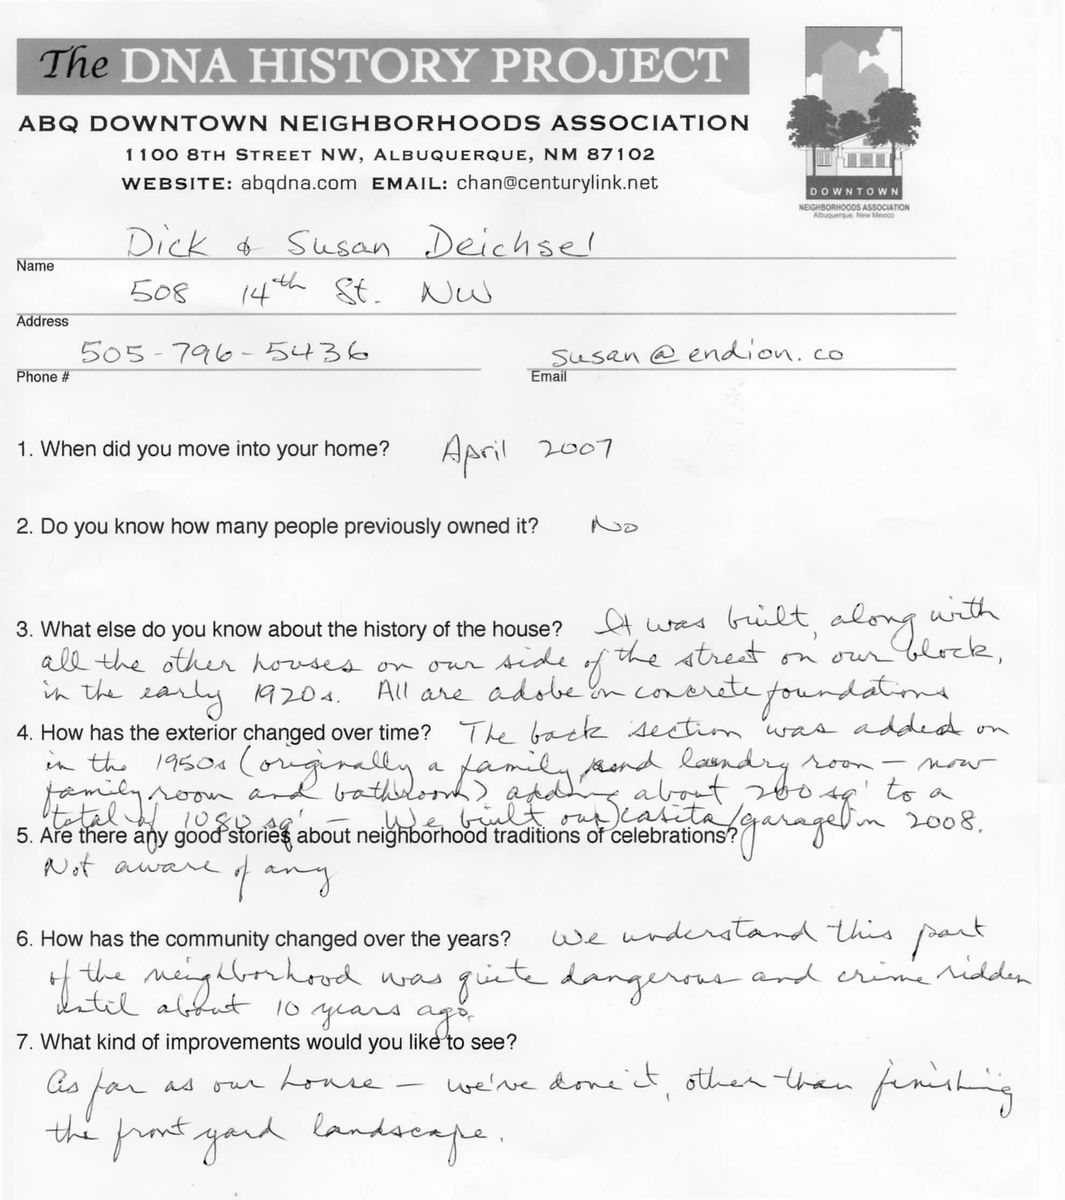 The DNA HISTORY PROJECT
ABQ DOWNTOWN NEIGHBORHOODS ASSOCIATION
1100 8TH STREET NW, ALBUQUERQUE, NM 87102
WEBSITE: abqdna.com EMAIL: chan@centurylink.net
DOWNTOWN
NEIGHBORHOODS ASSOCIATION
Albuquerque, New Mexico
Dick & Susan Deichsel
Name
508 14th St. NW
Address
505-796-5436 susan@endion.co
Phone # Email
1. When did you move into your home? April 2007
2. Do you know how many people previously owned it? No
3. What else do you know about the history of the house? It was built, along with
all the other houses on our side of the street on our block,
in the early 1920s. All are adobe on concrete foundations
4. How has the exterior changed over time? The back section was added on
in the 1950s (originally a family and laundry room - now
family room and bathroom) adding about 200 sq' to a
total of 1080 sq' - We built our casita/garage in 2008.
5. Are there any good stories about neighborhood traditions of celebrations?
Not aware of any
6. How has the community changed over the years? We understand this part
of the neighborhood was quite dangerous and crime ridden
until about 10 years ago.
7. What kind of improvements would you like to see?
As far as our house - we've done it, other than finishing
the front yard landscape.